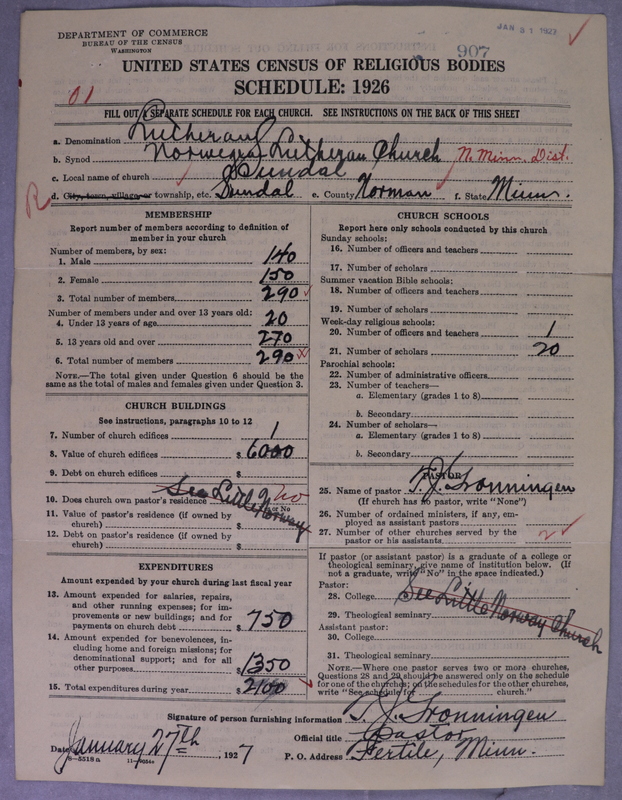 DEPARTMENT OF COMMERCE
BUREAU OF THE CENSUS
WASHINGTON
JAN 31 1927
907
UNITED STATES CENSUS OF RELIGIOUS BODIES
SCHEDULE: 1926
01
FILL OUT A SEPARATE SCHEDULE FOR EACH CHURCH. SEE INSTRUCTIONS ON THE BACK OF THIS SHEET
a. Denomination Lutheran
b. Synod Norwegia Lutheran Church N. Minn. Dist.
c. Local name of church Sundal
R
d. City, town, village, or township, etc. Sundal e. County Norman f. State Minn.
MEMBERSHIP
Report number of members according to definition of
member in your church
Number of members, by sex:
1. Male 140
2. Female 150
3. Total number of members 290
Number of members under and over 13 years old:
4. Under 13 years of age 20
5. 13 years old and over 270
6. Total number of members 290
NOTE.—The total given under Question 6 should be the
same as the total of males and females given under Question 3.
CHURCH BUILDINGS
See instructions, paragraphs 10 to 12
7. Number of church edifices 1
8. Value of church edifices $ 6000
9. Debt on church edifices $
10. Does church own pastor's residence See Little Norway no
or No
11. Value of pastor's residence (if owned by
church) $
12. Debt on pastor's residence (if owned by
church) $
EXPENDITURES
Amount expended by your church during last fiscal year
13. Amount expended for salaries, repairs,
and other running expenses; for im-
provements or new buildings; and for
payments on church debt $ 750
14. Amount expended for benevolences, in-
cluding home and foreign missions; for
denominational support; and for all
other purposes $ 1350
15. Total expenditures during year $ 2100
CHURCH SCHOOLS
Report here only schools conducted by this church
Sunday schools:
16. Number of officers and teachers
17. Number of scholars
Summer vacation Bible schools:
18. Number of officers and teachers
19. Number of scholars
Week-day religious schools:
20. Number of officers and teachers 1
21. Number of scholars 20
Parochial schools:
22. Number of administrative officers
23. Number of teachers—
a. Elementary (grades 1 to 8)
b. Secondary
24. Number of scholars—
a. Elementary (grades 1 to 8)
b. Secondary
PASTOR
25. Name of pastor T. J. Tronningen
(If church has no pastor, write "None")
26. Number of ordained ministers, if any, em-
ployed as assistant pastors
27. Number of other churches served by the
pastor or his assistants 2
If pastor (or assistant pastor) is a graduate of a college or
theological seminary, give name of institution below. (If
not a graduate, write "No" in the space indicated.)
Pastor:
28. College See Little Norway Church
29. Theological seminary
Assistant pastor:
30. College
31. Theological seminary
NOTE.—Where one pastor serves two or more churches,
Questions 28 and 29 should be answered only on the schedule
for one of the churches; on the schedules for the other churches,
write "See schedule for church."
Signature of person furnishing information T. J. Tronningen
Official title Pastor
Date January 27th, 1927
P. O. Address Fertile, Minn.
8—5518a 11—9054